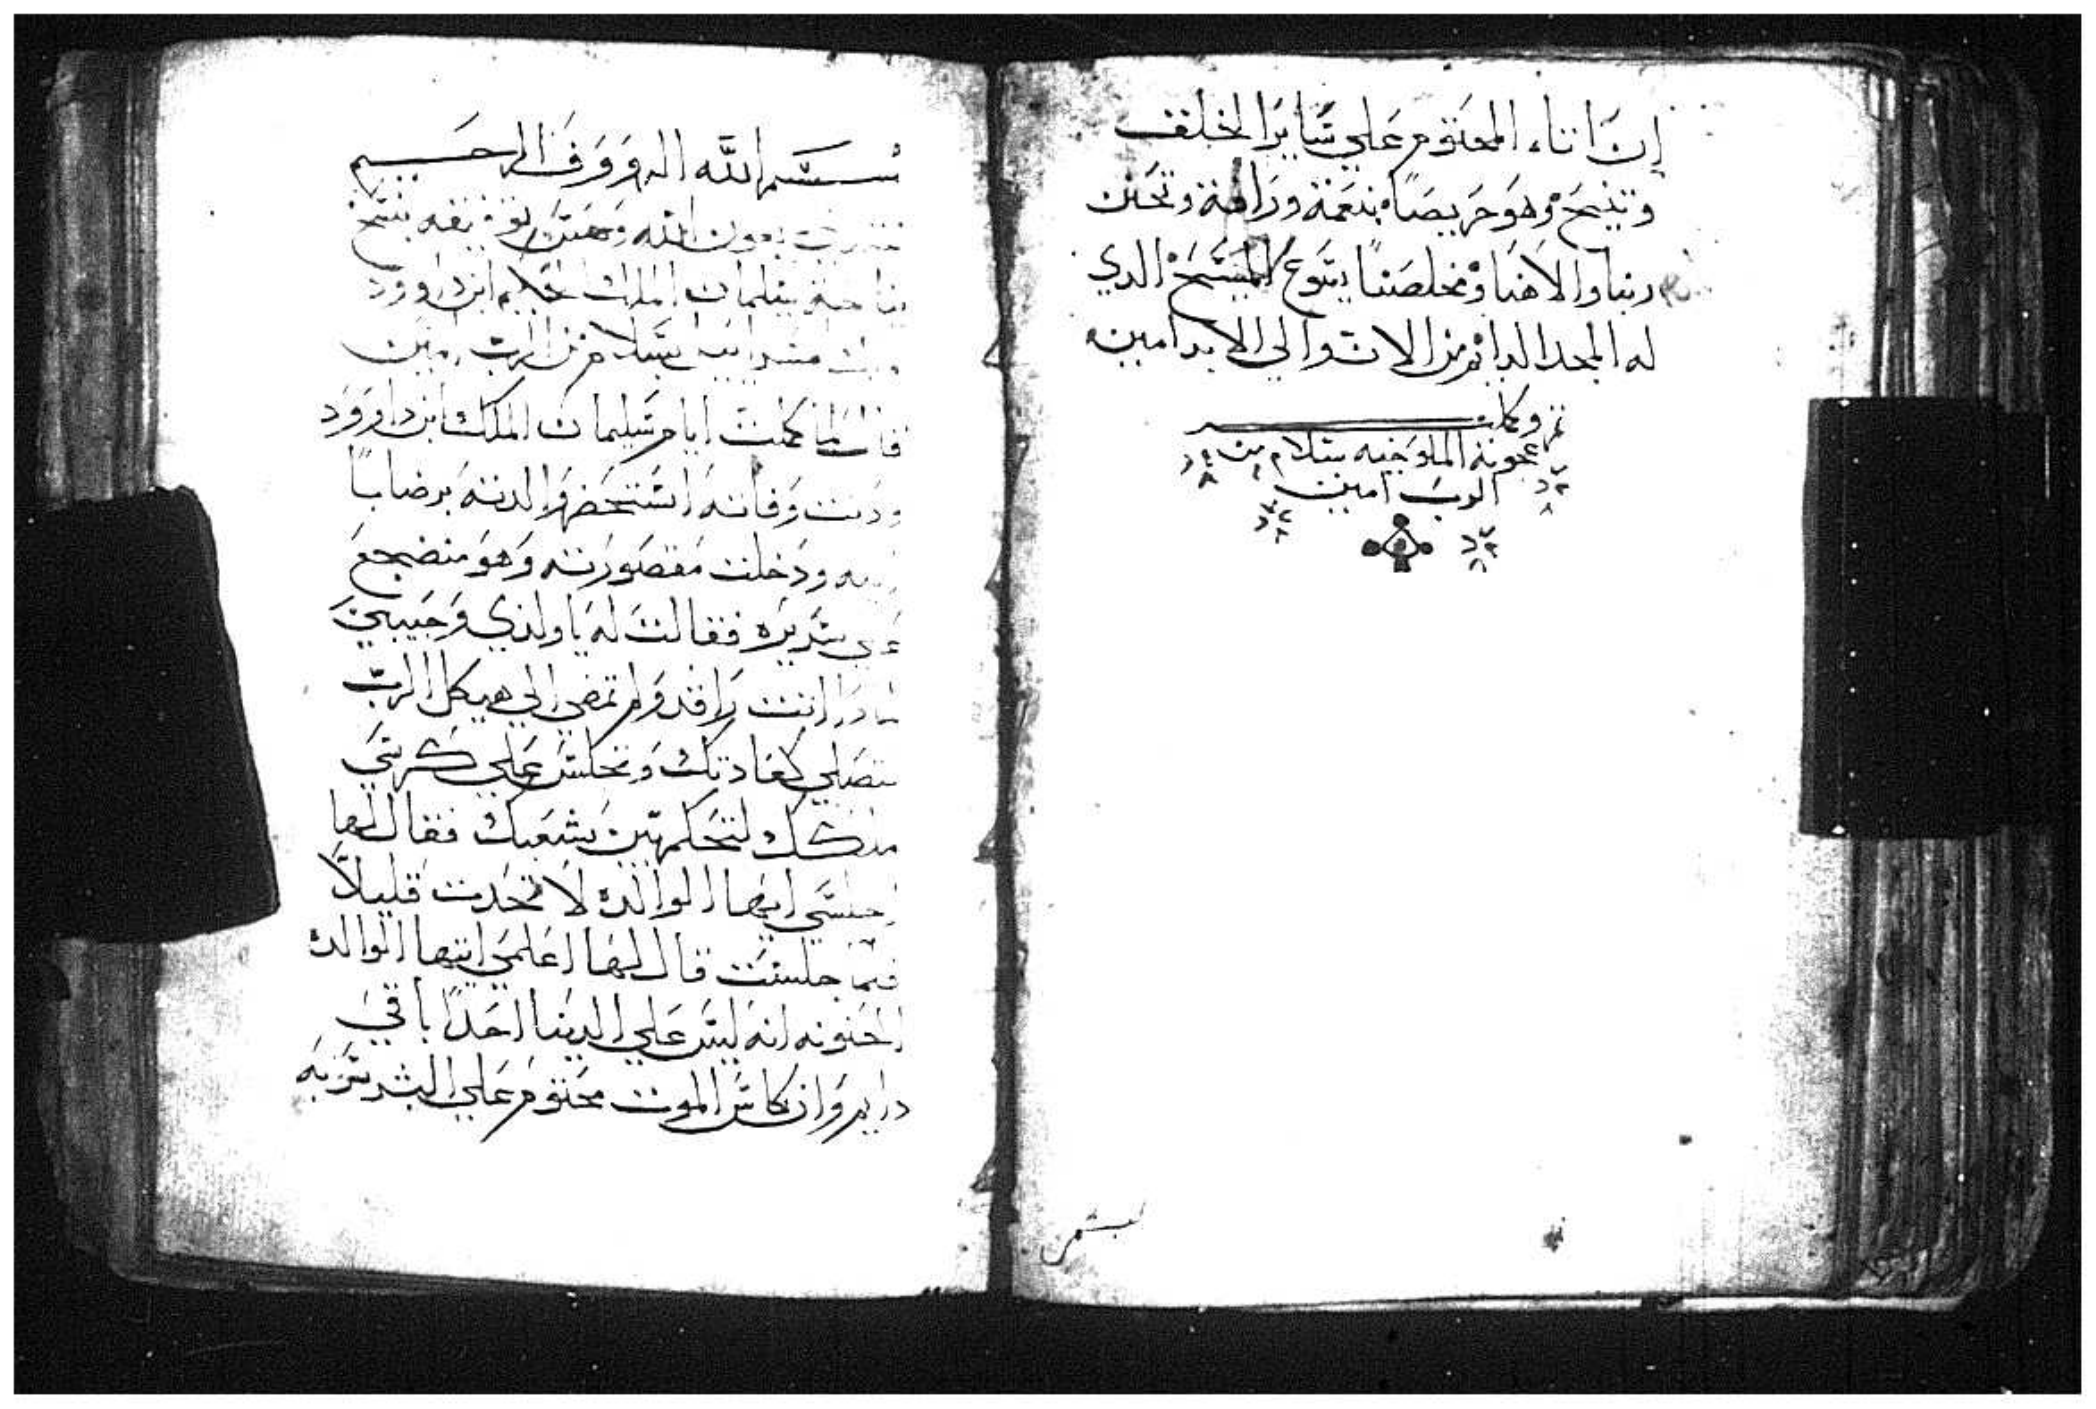 إن اتاه المحتوم علي ساير الخلق
وتنيح وهو حريصاً بنعمة ورافة وتحنن
ربنا والاهنا ومخلصنا يسوع المسيح الدي
له المجد الدايم من الان والي الابد امين
تم وكملت
بمعونة الله
الرب امين
بسم
بسم الله الرووف الرحيم
بعون الله وحسن توفيقه بنسخ
نياحة سليمان الملك الحكيم ابن داوود
بسلام من الرب امين
قال لما كملت ايام سليمان الملك ابن داوود
ودنت وفاته استحضر والدته برضابا
ودخلت مقصورته وهو منضجع
علي سريره فقالت له يا ولدي وحبيبي
لمادا انت راقد ولم تمضي الي هيكل الرب
لتصلي كعادتك وتجلس علي كرسي
ملكك لتحكم بين شعبك فقال لها
اجلسي ايتها الوالدة لاتحدت قليلاً
فلما جلست قال لها اعلمي ايتها الوالده
الحنونه انه ليس علي الدنيا احداً باقي
دايم وان كاس الموت محتوم علي البشر شربه